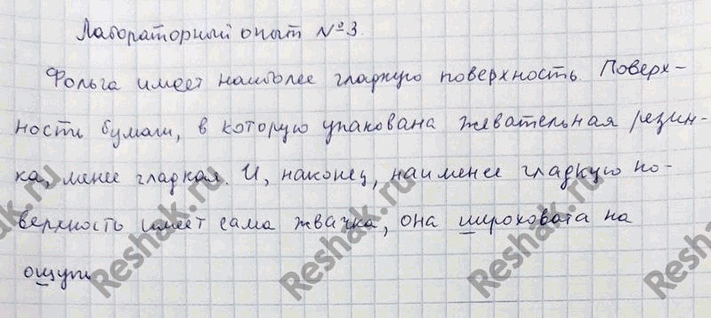 Лабораторный опыт №3.
Фольга имеет наиболее гладкую поверхность. Поверх-
ности бумаги, в которую упакована жевательная резин-
ка, менее гладкая. И, наконец, наименее гладкую по-
верхность имеет сама жвачка, она шероховата на
Reshak.ru
Reshak.ru
Reshak.ru
Reshak.ru